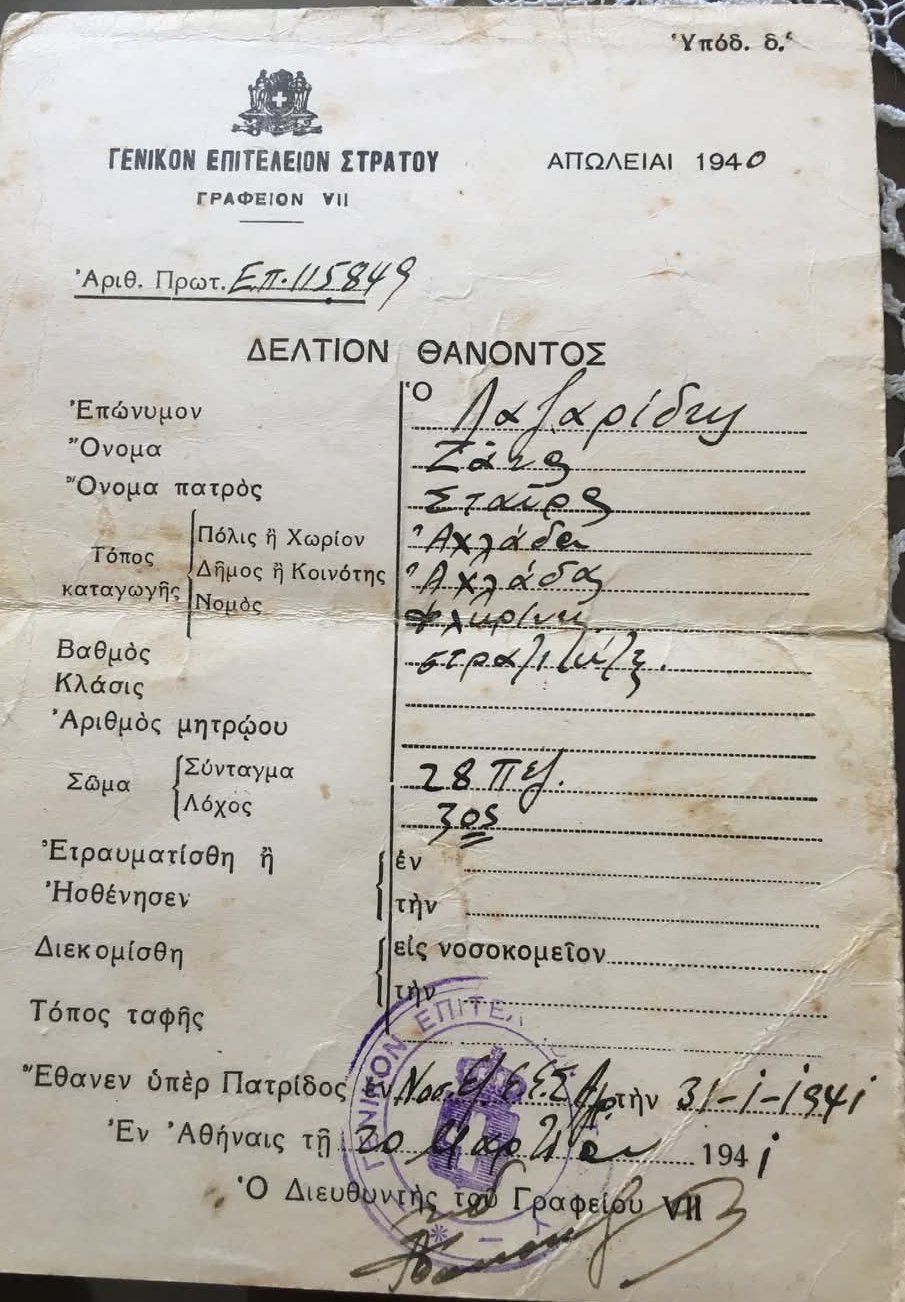 Ὑπόδ. δ.'
ΓΕΝΙΚΟΝ ΕΠΙΤΕΛΕΙΟΝ ΣΤΡΑΤΟΥ
ΑΠΩΛΕΙΑΙ 1940
ΓΡΑΦΕΙΟΝ VII
Ἀριθ. Πρωτ. Επ. 115849
ΔΕΛΤΙΟΝ ΘΑΝΟΝΤΟΣ
Ἐπώνυμον Ὁ Λαζαρίδης
Ὄνομα
Ὄνομα πατρὸς Σταῦρος
Τόπος καταγωγῆς
Πόλις ἢ Χωρίον Ἀχλάδα
Δῆμος ἢ Κοινότης Ἀχλάδας
Νομὸς Φλώρινα
Βαθμὸς στρατιώτης
Κλάσις
Ἀριθμὸς μητρῴου
Σῶμα
Σύνταγμα 28 Πεζ.
Λόχος 3ος
Ἐτραυματίσθη ἢ ἐν
Ἠσθένησεν τὴν
Διεκομίσθη εἰς νοσοκομεῖον
τὴν
Τόπος ταφῆς
Ἔθανεν ὑπὲρ Πατρίδος ἐν Νοσ. τὴν 31-1-1941
Ἐν Ἀθήναις τῇ 20 Μαρτίου 1941
Ὁ Διευθυντὴς τοῦ Γραφείου VII
ΓΕΝΙΚΟΝ ΕΠΙΤΕΛ